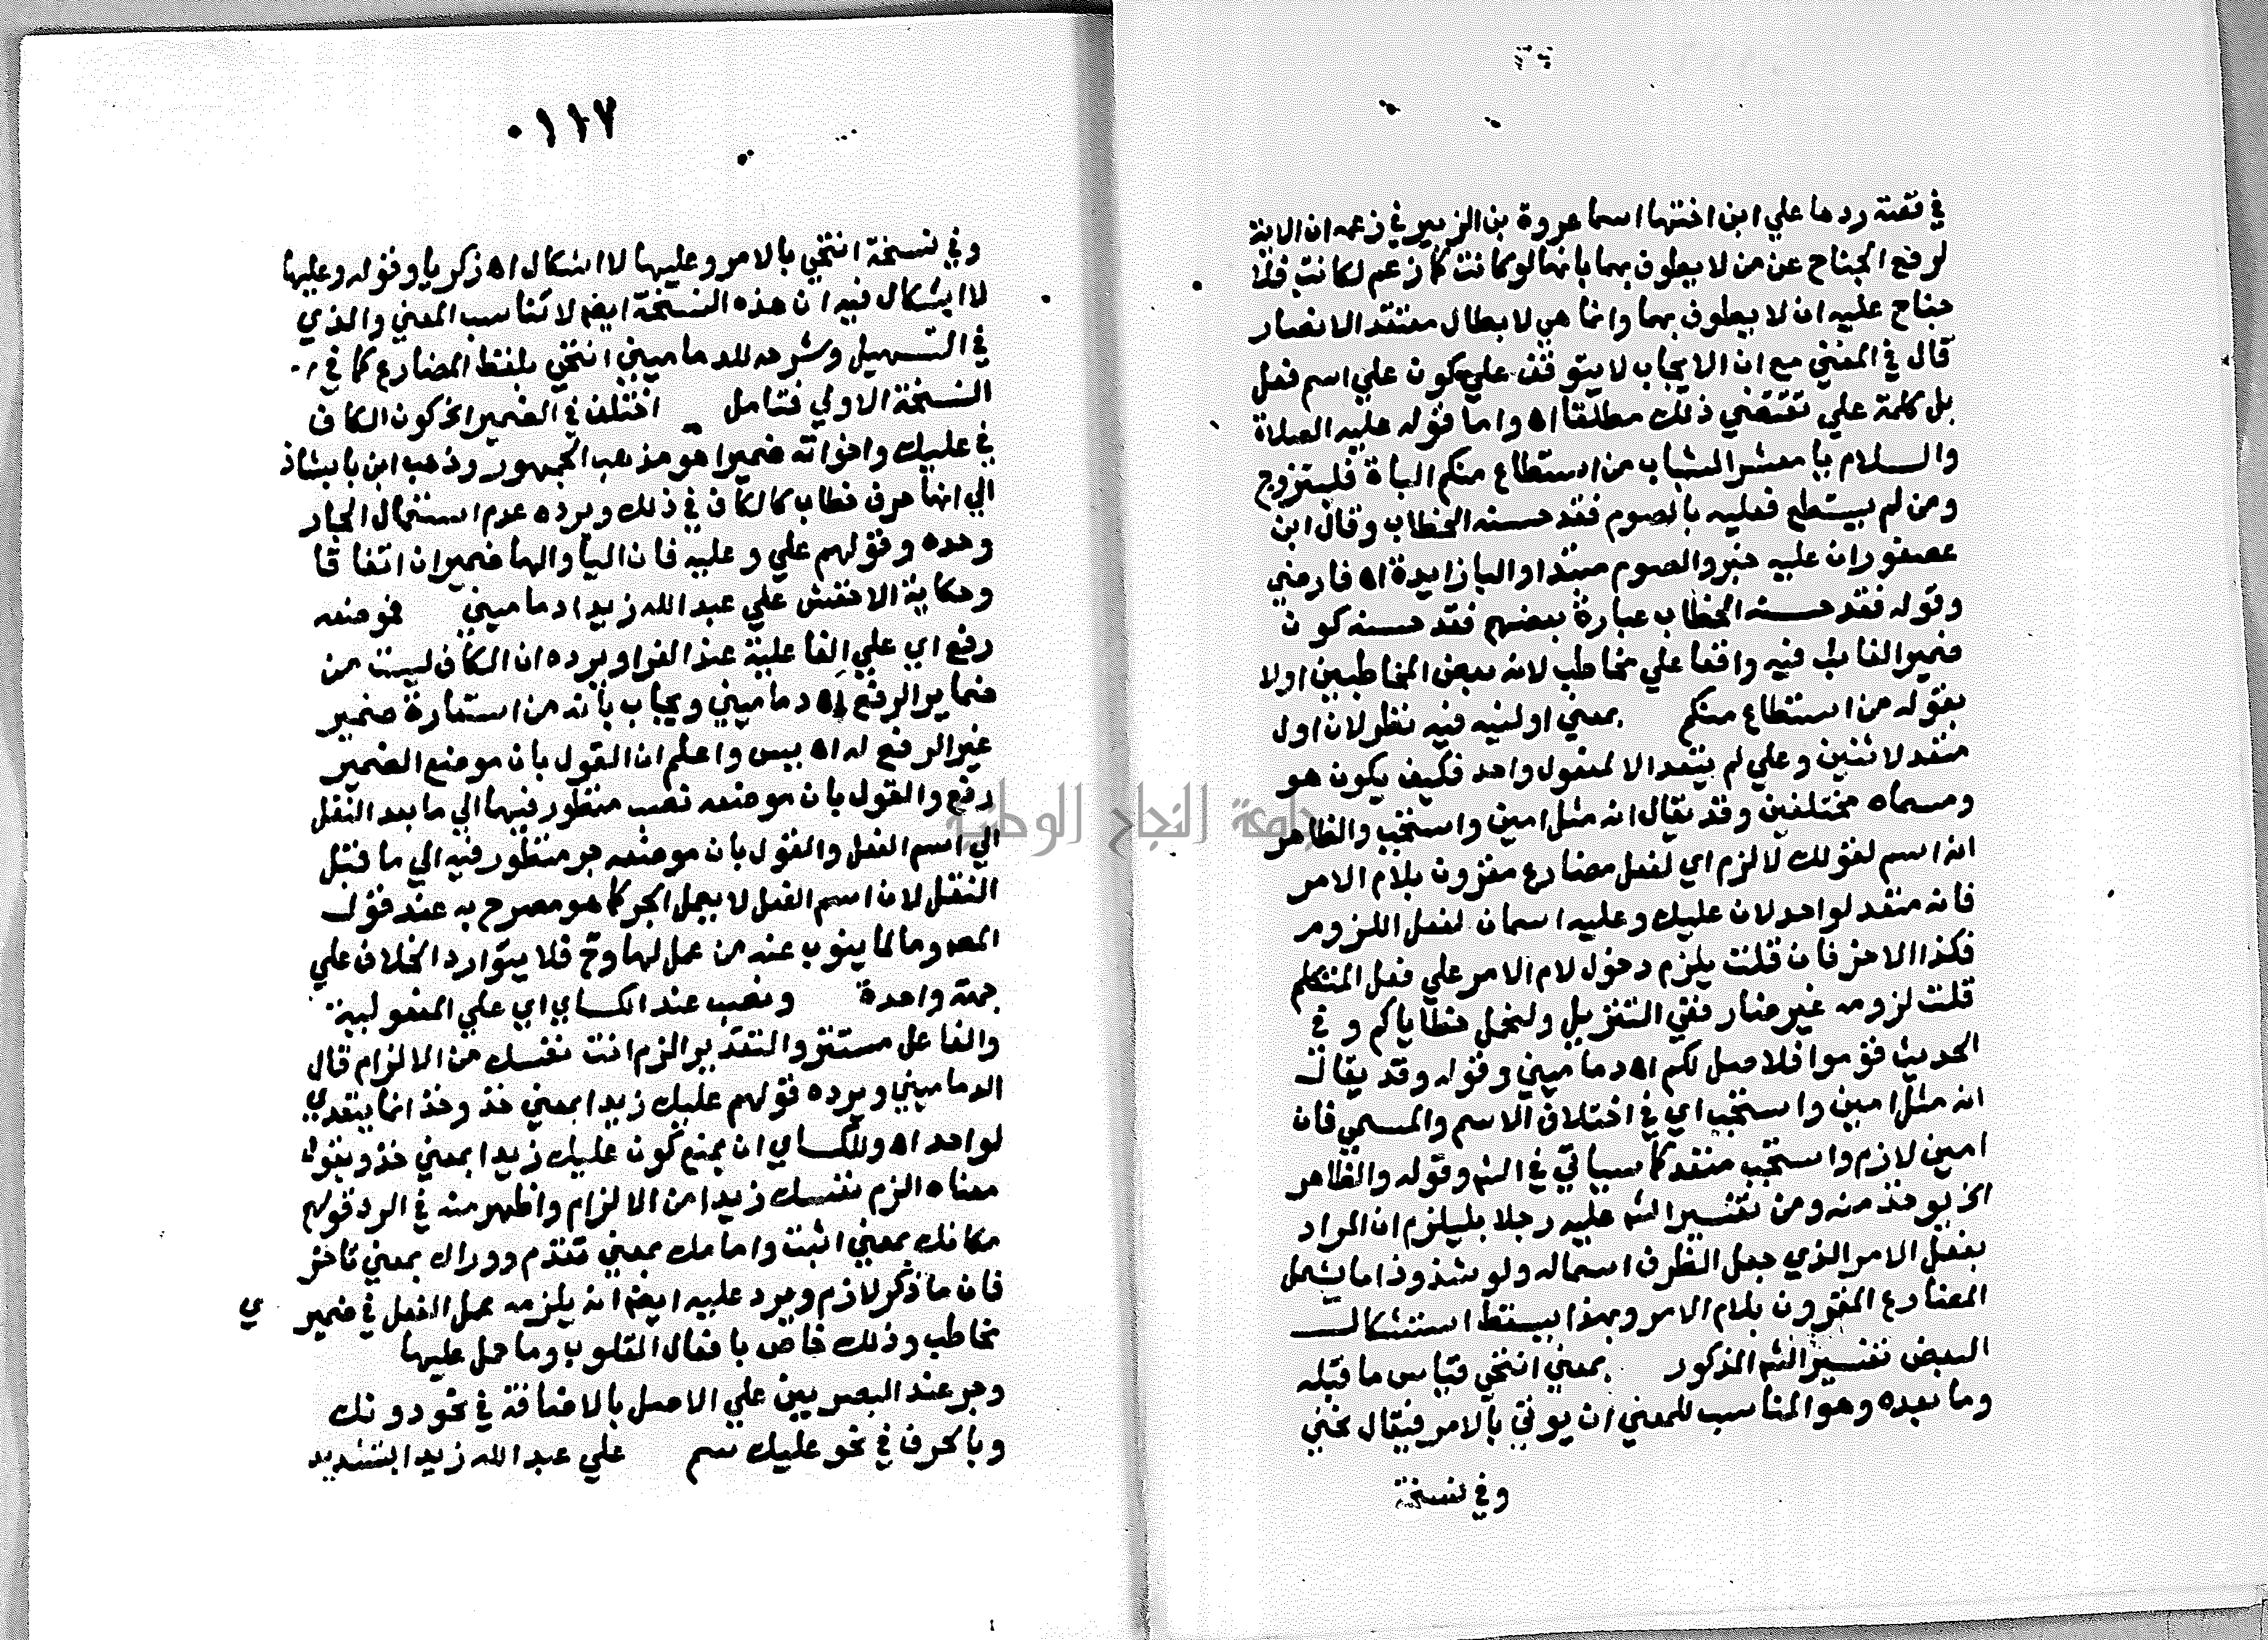 في قصة ردها علي ابن اختها اسما عروة بن الزبير في زعمه ان الاية
لرفع الجناح عن من لا يطوف بهما بانها لو كانت كما زعم لكانت فلا
جناح عليه ان لا يطوف بهما وانما هي لابطال معتقد الانصار
قال في المغني مع ان الايجاب لا يتوقف علي كون علي اسم فعل
بل كلمة علي تقتضي ذلك مطلقا اه واما قوله عليه الصلاة
والسلام يا معشر الشباب من استطاع منكم الباة فليتزوج
ومن لم يستطع فعليه بالصوم فقد حسنه الخطاب وقال ابن
عصفور ان عليه خبر والصوم مبتدا والبا زايدة اه فارضي
وقوله فقد حسنه الخطاب عبارة بعضهم فقد حسنه كون
ضمير الغائب فيه واقعا علي مخاطب لانه بعض المخاطبين اولا
بقوله من استطاع منكم بمعني اولنيه فيه نظر لان اول
متعد لاثنين وعلي لم يتعد الا لمفعول واحد فكيف يكون هو
ومسماه مختلفين وقد يقال انه مثل امين واستجب والظاهر
انه اسم لقولك لالزم اي لفعل مضارع مقرون بلام الامر
فانه متعد لواحد لان عليك وعليه اسمان لفعل اللزوم
فكذا الاخر فان قلت يلزم دخول لام الامر علي فعل المتكلم
قلت لزومه غير ضار ففي التنزيل ولنحمل خطاياكم وفي
الحديث قوموا فلاصل لكم اه دماميني وقوله وقد يقال
انه مثل امين واستجب اي في اختلاف الاسم والمسمي فان
امين لازم واستجب متعد كما سياتي في الشم وقوله والظاهر
الخ يوخذ منه ومن تفسير الشم عليه رجلا بليلزم ان المراد
بفعل الامر الذي جعل الظرف اسماله ولو شذوذا ما يشمل
المضارع المقرون بلام الامر وبهذا يسقط استشكال
البعض تفسير الشم المذكور بمعني انتحي قياس ما قبله
وما بعده وهو المناسب للمعني ان يوتي بالامر فيقال نحني
وفي نسخة
٠١١٧
وفي نسخة انتحي بالامر وعليها لا اشكال اه زكريا وقوله وعليها
لا اشكال فيه ان هذه النسخة ايضم لا تناسب المعني والذي
في التسهيل وشرحه للدماميني انتحي بلفظ المضارع كما في
النسخة الاولي فتامل اختلف في الضمير الخ كون الكاف
في عليك واخواته ضميرا هو مذهب الجمهور وذهب ابن بابشاذ
الي انها حرف خطاب كالكاف في ذلك ويرده عدم استعمال الجار
وحده وقولهم علي وعليه فان اليا والها ضميران اتفاقا
وحكاية الاخفش علي عبد الله زيدا دماميني فموضعه
رفع اي علي الفاعلية عند الفرا ويرده ان الكاف ليست من
ضماير الرفع اه دماميني ويجاب بانه من استعارة ضمير
غير الرفع له اه يس واعلم ان القول بان موضع الضمير
رفع والقول بان موضعه نصب منظور فيهما الي ما بعد النقل
الي اسم الفعل والقول بان موضعه جر منظور فيه الي ما قبل
النقل لان اسم الفعل لا يعمل الجر كما هو مصرح به عند قول
المصم وما لما ينوب عنه من عمل لها وح فلا يتوارد الخلاف علي
جهة واحدة ونصب عند الكساي اي علي المفعولية
والفاعل مستتر والتقدير الزم انت نفسك من الالزام قال
الدماميني ويرده قولهم عليك زيدا بمعني خذ وخذ انما يتعدي
لواحد اه وللكساي ان يمنع كون عليك زيدا بمعني خذ ويقول
معناه الزم نفسك زيدا من الالزام واظهر منه في الرد قولهم
مكانك بمعني اثبت وامامك بمعني تقدم ووراك بمعني تاخر
فان ما ذكر لازم ويرد عليه ايضم انه يلزمه عمل الفعل في ضميري
مخاطب وذلك خاص بافعال القلوب وما حمل عليها
وجر عند البصريين علي الاصل بالاضافة في نحو دونك
وبالحرف في نحو عليك سم علي عبد الله زيدا بتشديد
جامعة النجاح الوطنية